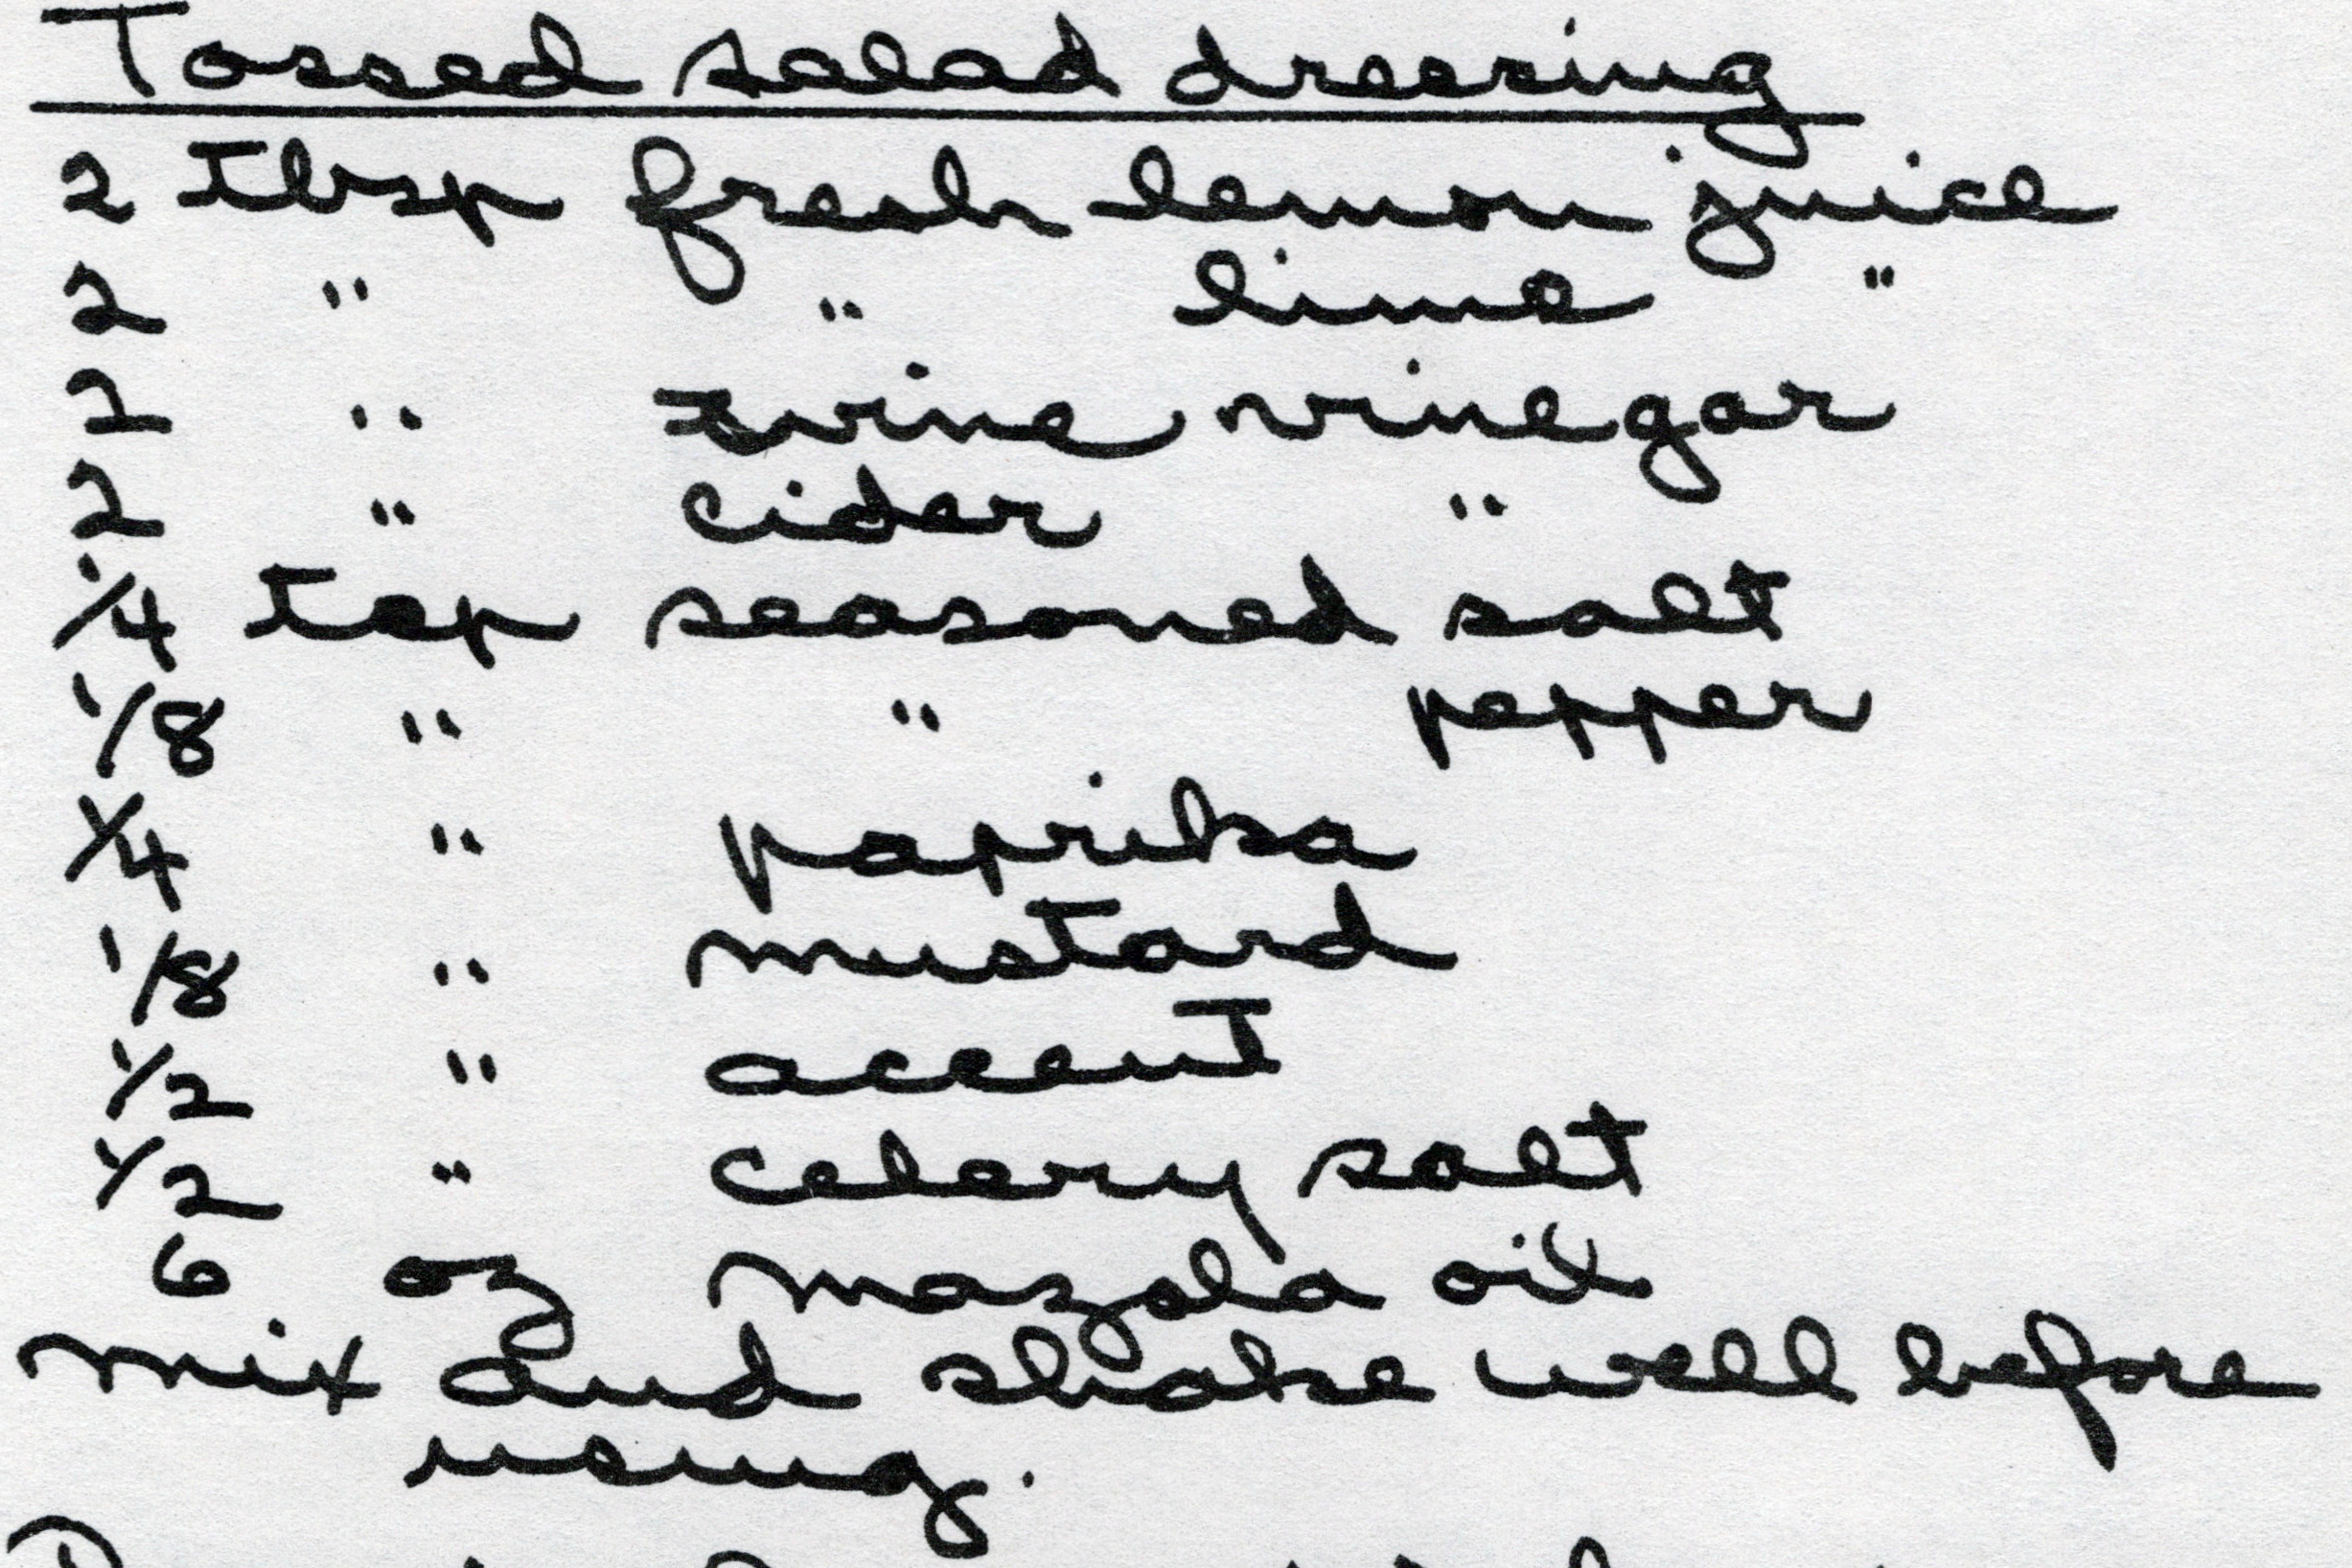 Tossed salad dressing
2 Tbsp fresh lemon juice
2 " " lime "
2 " wine vinegar
2 " cider "
1/4 Tsp seasoned salt
1/8 " " pepper
1/4 " paprika
1/8 " mustard
1/2 " accent
1/2 " celery salt
6 oz mazola oil
mix and shake well before
using.